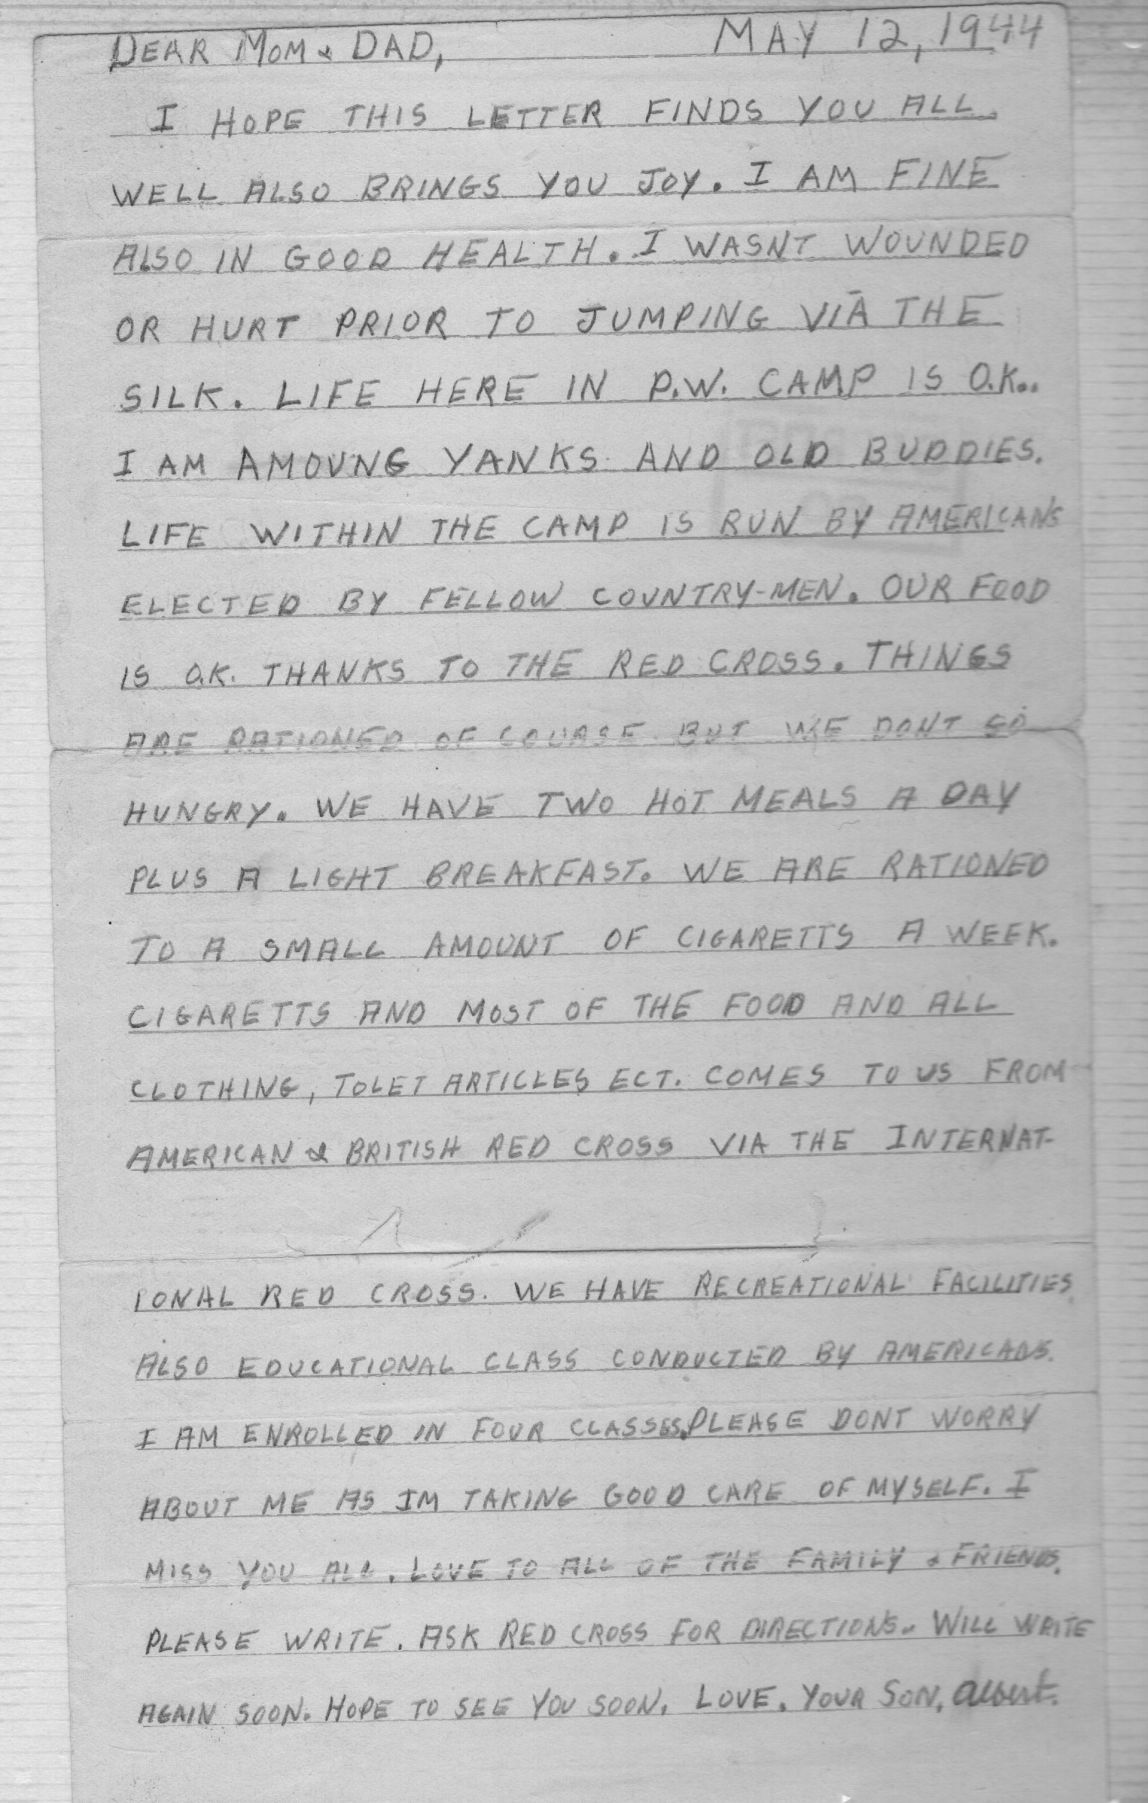 DEAR MOM & DAD, MAY 12, 1944
I HOPE THIS LETTER FINDS YOU ALL
WELL ALSO BRINGS YOU JOY. I AM FINE
ALSO IN GOOD HEALTH. I WASNT WOUNDED
OR HURT PRIOR TO JUMPING VIA THE
SILK. LIFE HERE IN P.W. CAMP IS O.K..
I AM AMOUNG YANKS AND OLD BUDDIES.
LIFE WITHIN THE CAMP IS RUN BY AMERICANS
ELECTED BY FELLOW COUNTRY-MEN. OUR FOOD
IS O.K. THANKS TO THE RED CROSS. THINGS
ARE RATIONED OF COURSE BUT WE DONT GO
HUNGRY. WE HAVE TWO HOT MEALS A DAY
PLUS A LIGHT BREAKFAST. WE ARE RATIONED
TO A SMALL AMOUNT OF CIGARETTS A WEEK.
CIGARETTS AND MOST OF THE FOOD AND ALL
CLOTHING, TOLET ARTICLES ECT. COMES TO US FROM
AMERICAN & BRITISH RED CROSS VIA THE INTERNAT-
IONAL RED CROSS. WE HAVE RECREATIONAL FACILITIES
ALSO EDUCATIONAL CLASS CONDUCTED BY AMERICANS.
I AM ENROLLED IN FOUR CLASSES. PLEASE DONT WORRY
ABOUT ME AS IM TAKING GOOD CARE OF MYSELF. I
MISS YOU ALL. LOVE TO ALL OF THE FAMILY & FRIENDS.
PLEASE WRITE. ASK RED CROSS FOR DIRECTIONS. WILL WRITE
AGAIN SOON. HOPE TO SEE YOU SOON. LOVE. YOUR SON, Albert.